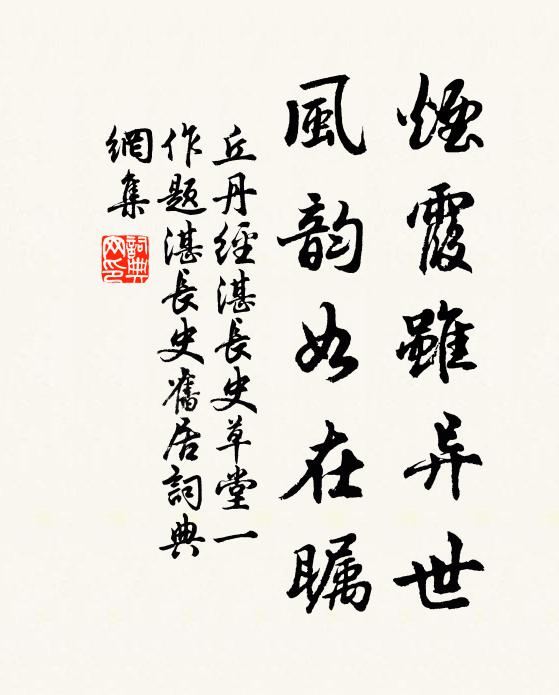 煙霞雖异世
風韵如在瞩
丘丹經湛長史草堂一
作題湛長史舊居詞典
網集
詞典網印